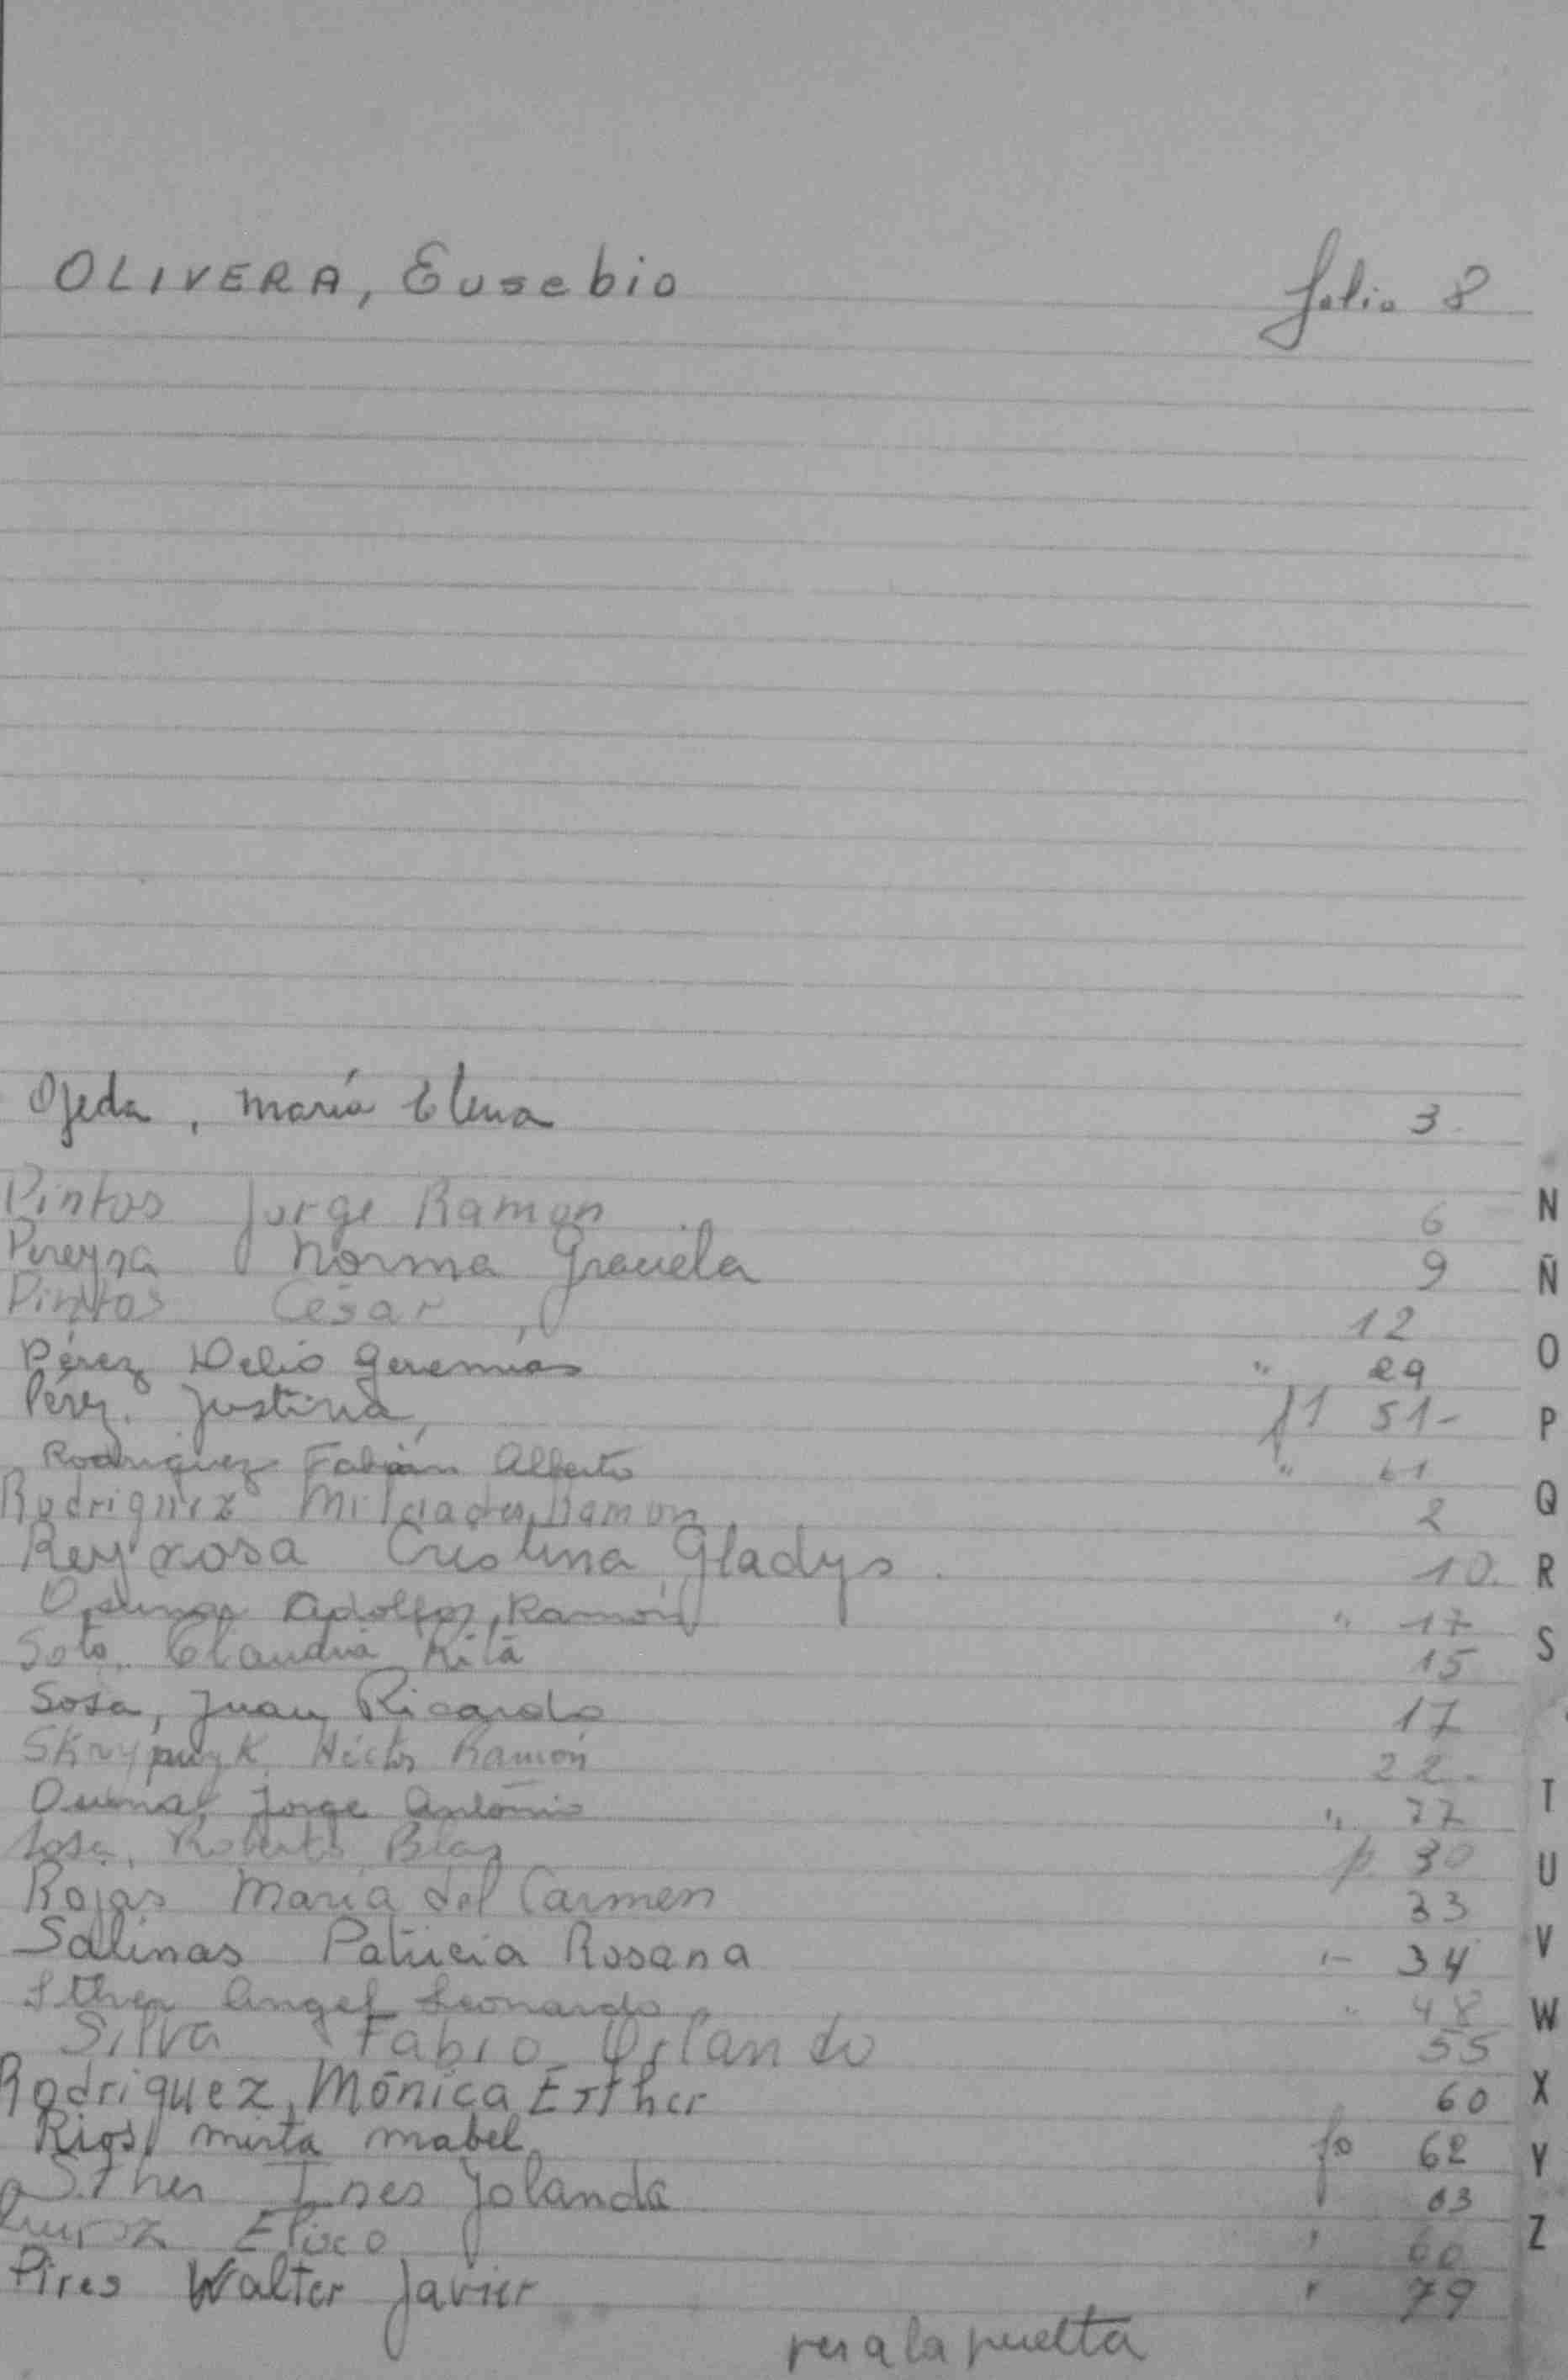 OLIVERA, Eusebio folio 8
Ojeda, María Elena 3
Pintos Jorge Ramon 6
Pereyra Norma Graciela 9
Pintos César 12
Pérez Delio Geremías " 29
Pérez, Justina, f1 51-
Rodriguez Fabián Alberto " 61
Rodriguez Milciades Ramon 2
Reynosa Cristina Gladys. 10.
Adolfo, Ramón " 17
Soto, Claudia Rita 15
Sosa, Juan Ricardo 17
Skrypnyk, Héctor Ramón 22.
Jorge Antonio " 27
Sosa, Roberto Blas 30
Rojas María del Carmen 33
Salinas Patricia Rosana " 34
Sther Angel Leonardo " 48
Silva Fabio Orlando 55
Rodriguez, Mónica Esther 60
Rios, mirta mabel fo 62
Sther Ines Yolanda 63
Eliseo
Pires Walter Javier " 79
ver a la vuelta
N
Ñ
O
P
Q
R
S
T
U
V
W
X
Y
Z